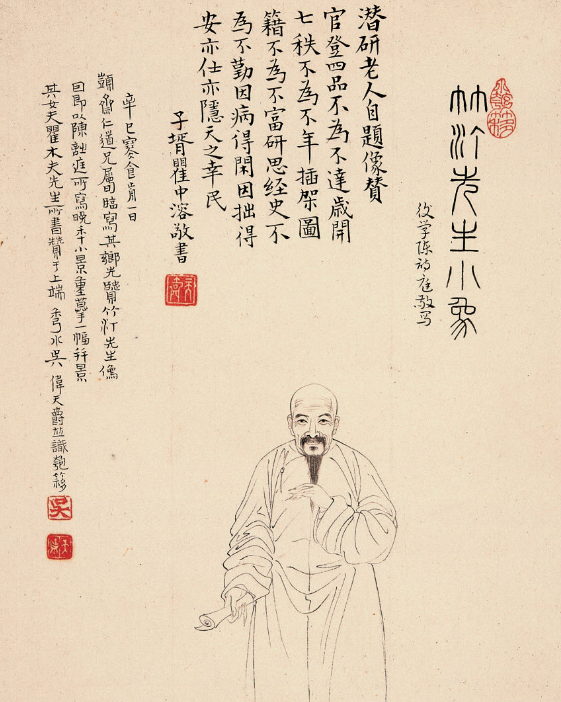 竹汀先生小象
後学陈詩庭敬写
潛研老人自題像贊
官登四品不為不達歲開
七秩不為不年插架圖
籍不為不富研思經史不
為不勤因病得閑因拙得
安亦仕亦隱天之幸民
子壻瞿中溶敬書
辛巳寒食前一日
齋仁道兄屬臨寫其鄉先賢竹汀先生像
回即以陳詩庭所寫小景重摹一幅并
其女夫瞿木夫先生所書贊于上端 秀水吳偉天爵並識
吳